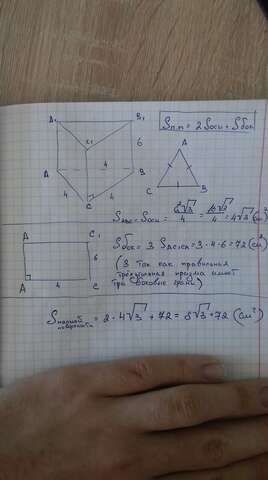 A₁ B₁
Sп.п = 2Sосн + Sбок
C₁ 6
A 4 B
4 4
C
A
C B
SABC = Sосн = a²√3/4 = 16√3/4 = 4√3 (см²)
A C₁
6
A 4 C
Sбок = 3 SAC₁CA = 3·4·6 = 72 (см²)
(3 так как правильная
треугольная призма имеет
три боковые грани)
Sполной поверхности = 2·4√3 + 72 = 8√3 + 72 (см²)